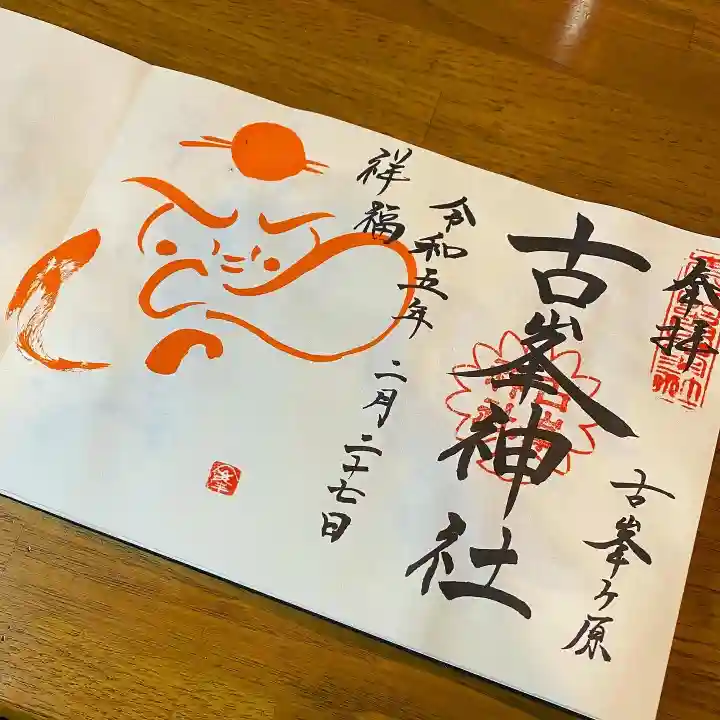 奉拝
古峯ヶ原
古峯神社
令和五年 二月二十七日
祥福